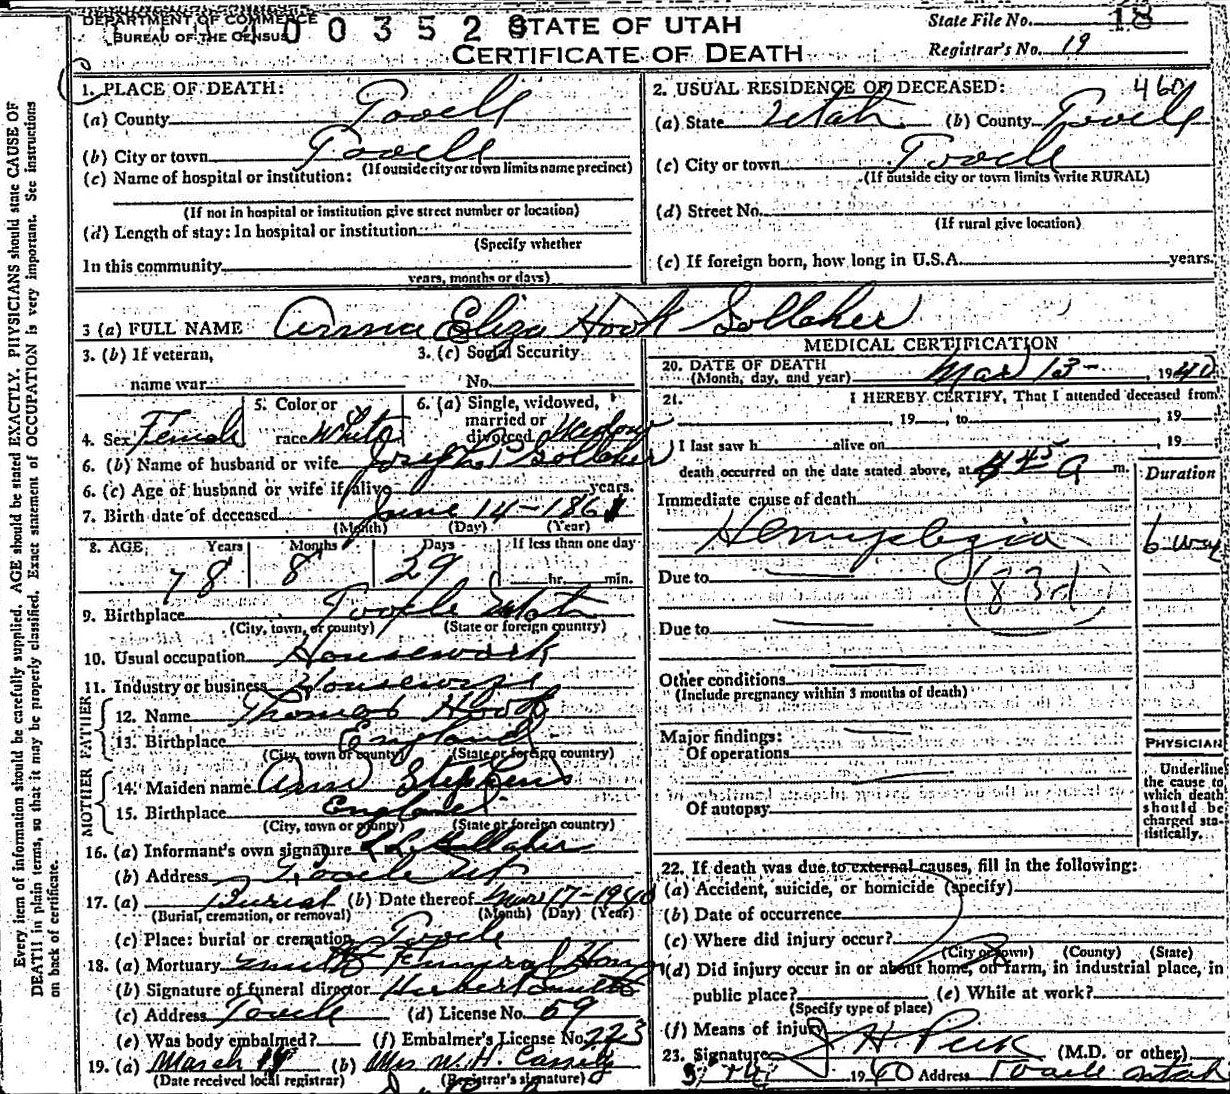 DEPARTMENT OF COMMERCE
BUREAU OF THE CENSUS
400352
STATE OF UTAH
CERTIFICATE OF DEATH
State File No. 18
Registrar's No. 19
1. PLACE OF DEATH:
(a) County Tooele
(b) City or town Tooele
(If outside city or town limits name precinct)
(c) Name of hospital or institution:
(If not in hospital or institution give street number or location)
(d) Length of stay: In hospital or institution
(Specify whether
In this community
years, months or days)
2. USUAL RESIDENCE OF DECEASED: 460
(a) State Utah (b) County Tooele
(c) City or town Tooele
(If outside city or town limits write RURAL)
(d) Street No.
(If rural give location)
(e) If foreign born, how long in U.S.A. years.
3 (a) FULL NAME Anna Eliza Hook Gollaher
3. (b) If veteran,
name war
3. (c) Social Security
No.
4. Sex Female
5. Color or
race White
6. (a) Single, widowed,
married or
divorced Widow
6. (b) Name of husband or wife Joseph P Gollaher
6. (c) Age of husband or wife if alive years.
7. Birth date of deceased June 14-1861
(Month) (Day) (Year)
8. AGE Years Months Days If less than one day
78 8 29 hr. min.
9. Birthplace Tooele Utah
(City, town, or county) (State or foreign country)
10. Usual occupation Housework
11. Industry or business Housewife
FATHER
12. Name Thomas Hook
13. Birthplace England
(City, town or county) (State or foreign country)
MOTHER
14. Maiden name Ann Stephens
15. Birthplace England
(City, town or county) (State or foreign country)
16. (a) Informant's own signature Gollaher
(b) Address Tooele Ut
17. (a) Burial (b) Date thereof Mar 17-1940
(Burial, cremation, or removal) (Month) (Day) (Year)
(c) Place: burial or cremation Tooele
18. (a) Mortuary Smith Funeral Home
(b) Signature of funeral director Herbert Smith
(c) Address Tooele (d) License No. 59
(e) Was body embalmed? (f) Embalmer's License No. 223
19. (a) March 14 (b) Mrs W. H. Cassity
(Date received local registrar) (Registrar's signature)
MEDICAL CERTIFICATION
20. DATE OF DEATH
(Month, day, and year) Mar 13- , 1940
21. I HEREBY CERTIFY, That I attended deceased from
, 19 , to , 19
I last saw h alive on , 19
death occurred on the date stated above, at 45 A m.
Duration
Immediate cause of death
Hemiplegia
Due to
(83d)
Due to
Other conditions
(Include pregnancy within 3 months of death)
Major findings:
Of operations
Of autopsy
PHYSICIAN
Underline
the cause to
which death
should be
charged sta-
tistically.
22. If death was due to external causes, fill in the following:
(a) Accident, suicide, or homicide (specify)
(b) Date of occurrence
(c) Where did injury occur?
(City or town) (County) (State)
(d) Did injury occur in or about home, on farm, in industrial place, in
public place? (e) While at work?
(Specify type of place)
(f) Means of injury
23. Signature J H Peck (M.D. or other)
3/14/ 1940 Address Tooele Utah
Every item of information should be carefully supplied. AGE should be stated EXACTLY. PHYSICIANS should state CAUSE OF
DEATH in plain terms, so that it may be properly classified. Exact statement of OCCUPATION is very important. See instructions
on back of certificate.